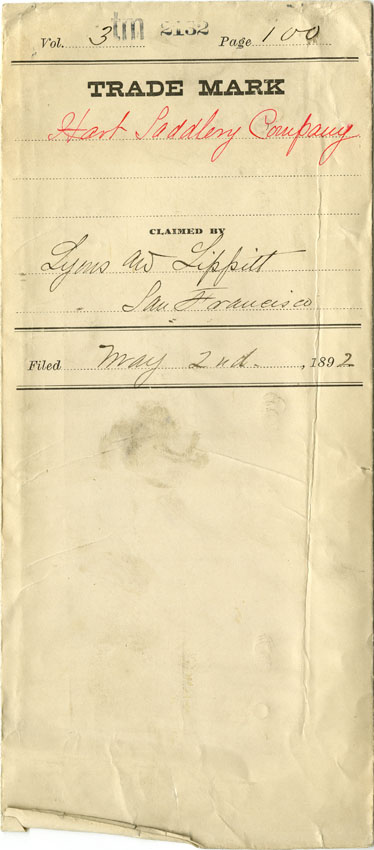 Vol. 3 tm 2152 Page 100
TRADE MARK
Hart Saddlery Company
CLAIMED BY
Lyons and Lippitt
San Francisco
Filed May 2nd. , 1892